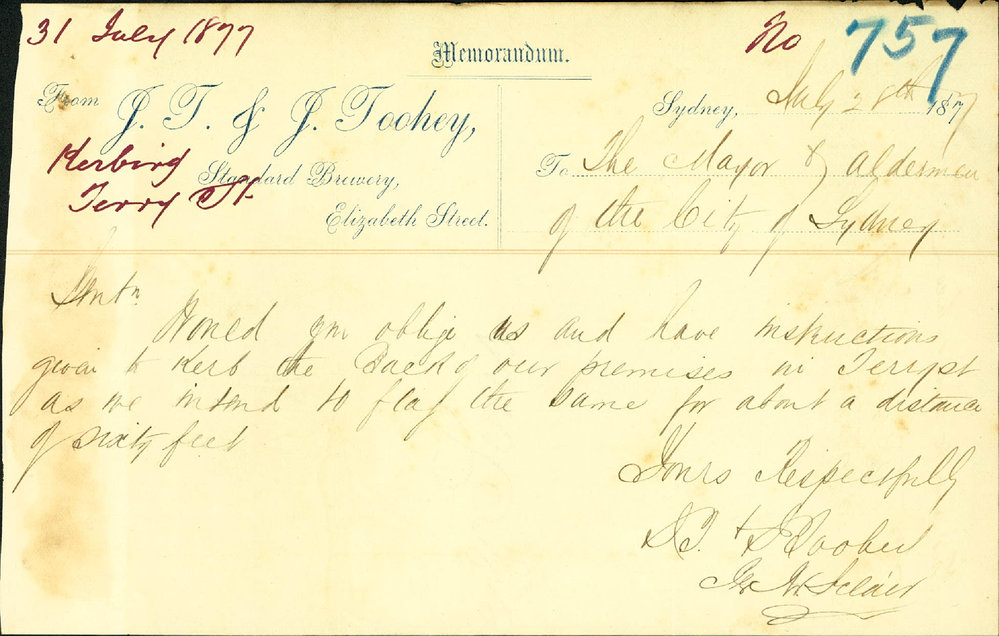 31 July 1877
No 757
Memorandum.
From J. T. & J. Toohey,
Standard Brewery,
Elizabeth Street.
Kerbing
Terry St
Sydney, July 28th 1877
To The Mayor & Aldermen
of the City of Sydney
Gentn
Would you oblige us and have instructions
given to Kerb the Back of our premises in Terry st
as we intend to flag the same for about a distance
of sixty feet
Yours Respectfully
J.T. & J Toohey